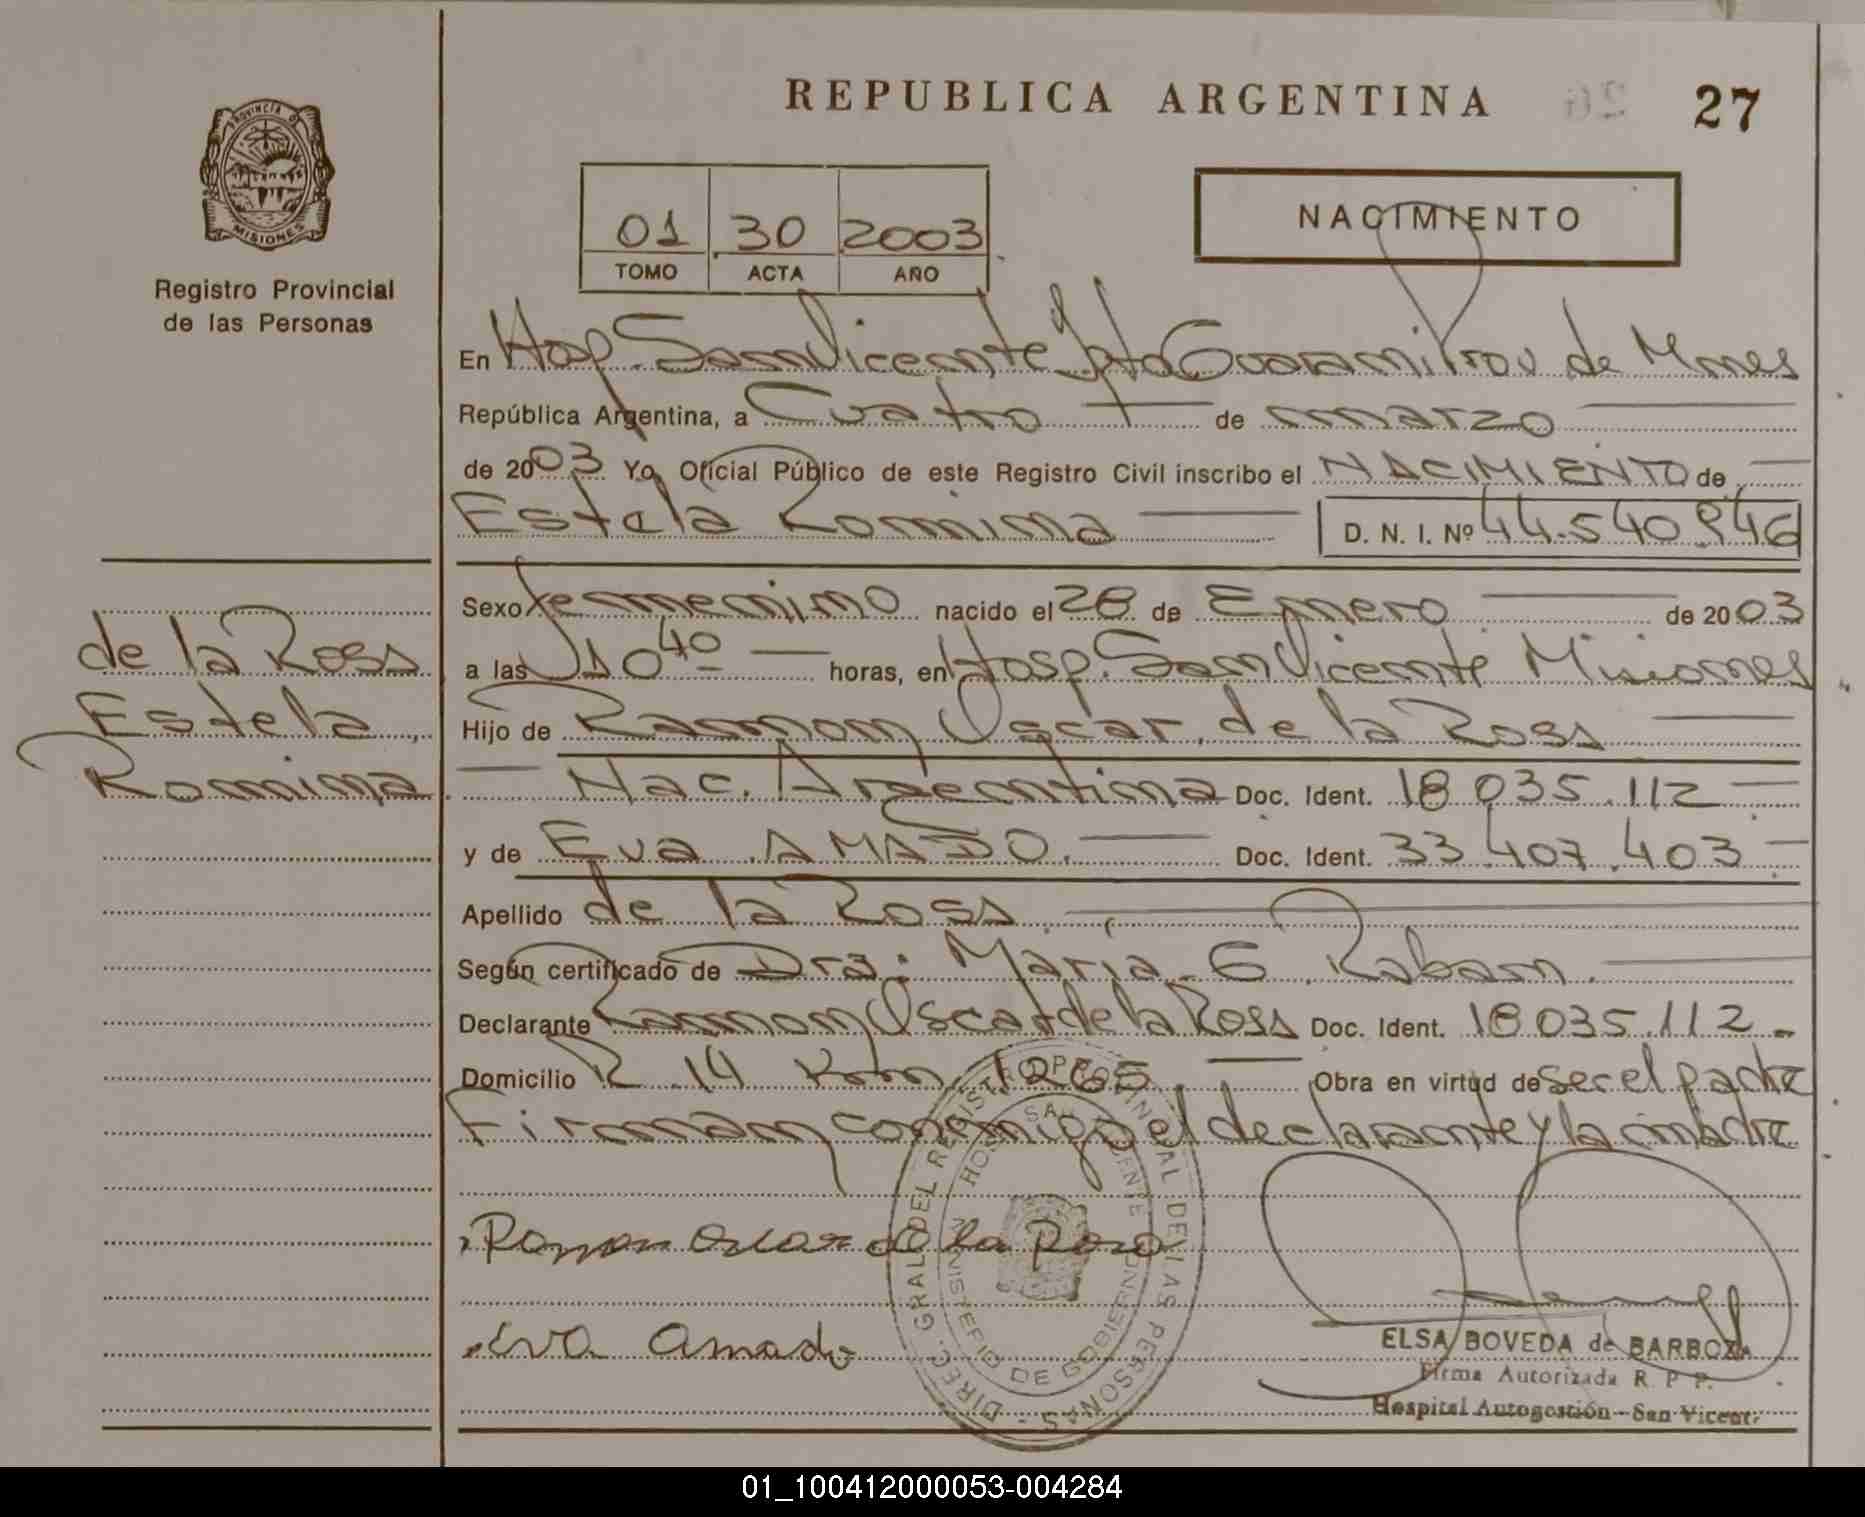 REPUBLICA ARGENTINA 27
PROVINCIA D
MISIONES
Registro Provincial
de las Personas
01 30 2003
TOMO ACTA AÑO
NACIMIENTO
En Hosp. San Vicente Dpto Guarani Prov de Mnes
República Argentina, a Cuatro de marzo
de 2003 Yo Oficial Público de este Registro Civil inscribo el NACIMIENTO de
Estela Romina D. N. I. Nº 44.540.946
Sexo femenino nacido el 28 de Enero de 2003
a las 10 40 horas, en Hosp. San Vicente Misiones
Hijo de Ramon Oscar de la Rosa
Nac. Argentina Doc. Ident. 18 035.112
y de Eva AMADO. Doc. Ident. 33.407.403
Apellido de la Rosa
Según certificado de Dra: Maria E Raban.
Declarante Ramon Oscar de la Rosa Doc. Ident. 18 035.112.
Domicilio R 14 Km 1265 Obra en virtud de ser el padre
Firman conmigo el declarante y la madre
de la Rosa
Estela
Romina
Ramon Oscar de la Rosa
Eva Amado
DIREC. GRAL DEL REGISTRO PROVINCIAL DE LAS PERSONAS
HOSP. SAN VICENTE
MINISTERIO DE GOBIERNO
ELSA BOVEDA de BARBOZA
Firma Autorizada R. P P.
Hospital Autogestión - San Vicente
01_100412000053-004284